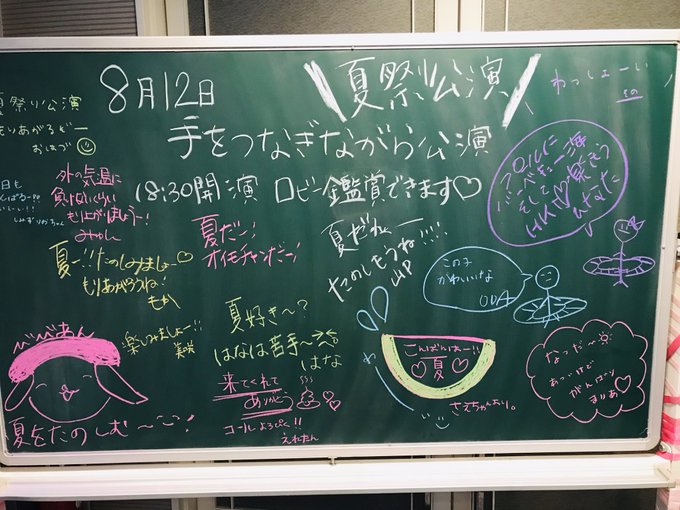 8月12日
夏祭り公演
手をつなぎながら公演
18:30開演 ロビー鑑賞できます♡
わっしょーい
夏祭り公演
もりあがるぞー
おはづ
外の気温に
負けないくらい
もり上がりましょう〜!
みゆん
夏だー!
オイモチャンだー!
夏だねー
たのしもうね!!!!
プールに
バーベキュー海
そして
HKT♡楽しもう
ひなた
この子
かわいいな
ODA
夏ー!!たのしみましょー♡
もりあがろうね!
もか
楽しみましょー!!
美咲
夏好き〜?
はなは苦手〜
はな
こんばんはー!!
♡夏♡
さえちゃんより。
なつだ〜
あついけど
がんばろう
まりあ♡
びびあん
夏をたのしむ〜
来てくれて
ありがとう
コールよろぴく!!
えれたん